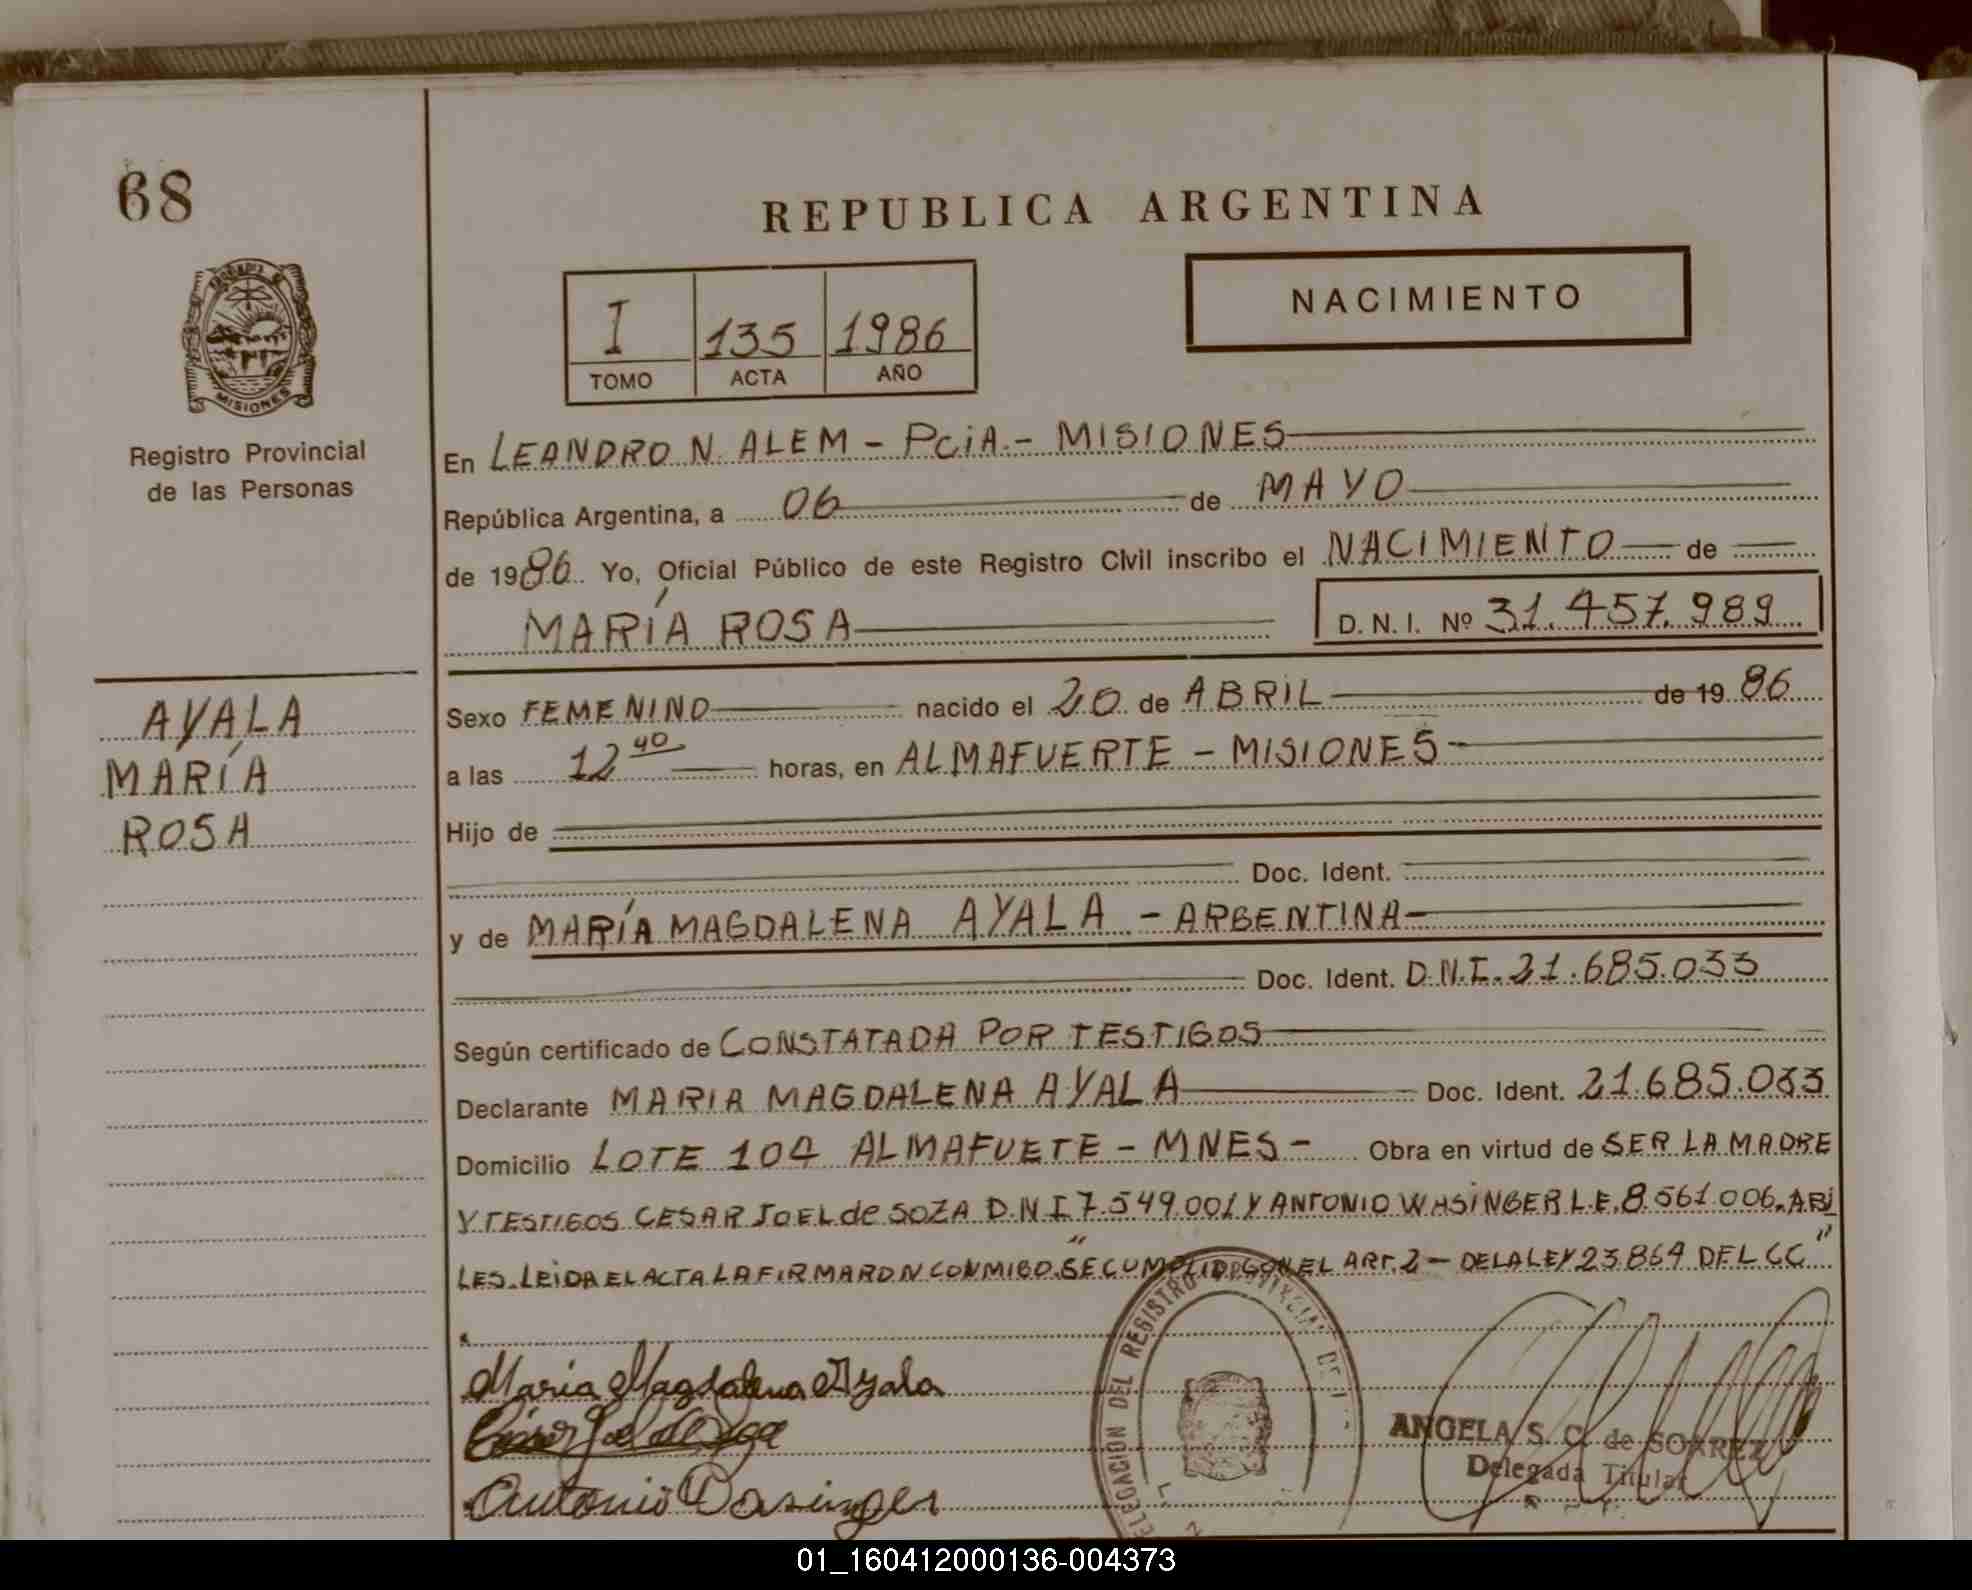 68
REPUBLICA ARGENTINA
NACIMIENTO
I 135 1986
TOMO ACTA AÑO
MISIONES
Registro Provincial
de las Personas
En LEANDRO N. ALEM - PCiA.- MISIONES
República Argentina, a 06 de MAYO
de 1986. Yo, Oficial Público de este Registro Civil inscribo el NACIMIENTO de
MARÍA ROSA D. N. I. Nº 31.457.989
AYALA
MARÍA
ROSA
Sexo FEMENINO nacido el 20 de ABRIL de 1986
a las 12 40 horas, en ALMAFUERTE - MISIONES -
Hijo de
Doc. Ident.
y de MARÍA MAGDALENA AYALA - ARGENTINA -
Doc. Ident. D.N.I. 21.685.033
Según certificado de CONSTATADA POR TESTIGOS
Declarante MARIA MAGDALENA AYALA Doc. Ident. 21.685.033
Domicilio LOTE 104 ALMAFUETE - MNES - Obra en virtud de SER LA MADRE
Y TESTIGOS CESAR JOEL de SOZA D.N.I 7.549.001 Y ANTONIO WASINGER L.E. 8.561.006. ABI
LES. LEIDA EL ACTA LA FIRMARON CONMIGO. "SE CUMPLIO CON EL ART. 2 - DE LA LEY 23864 DEL CC"
María Magdalena Ayala
Antonio Wasinger
DELEGACION DEL REGISTRO PROVINCIAL DE
ANGELA S. C. de SOAREZ
Delegada Titular
01_160412000136-004373